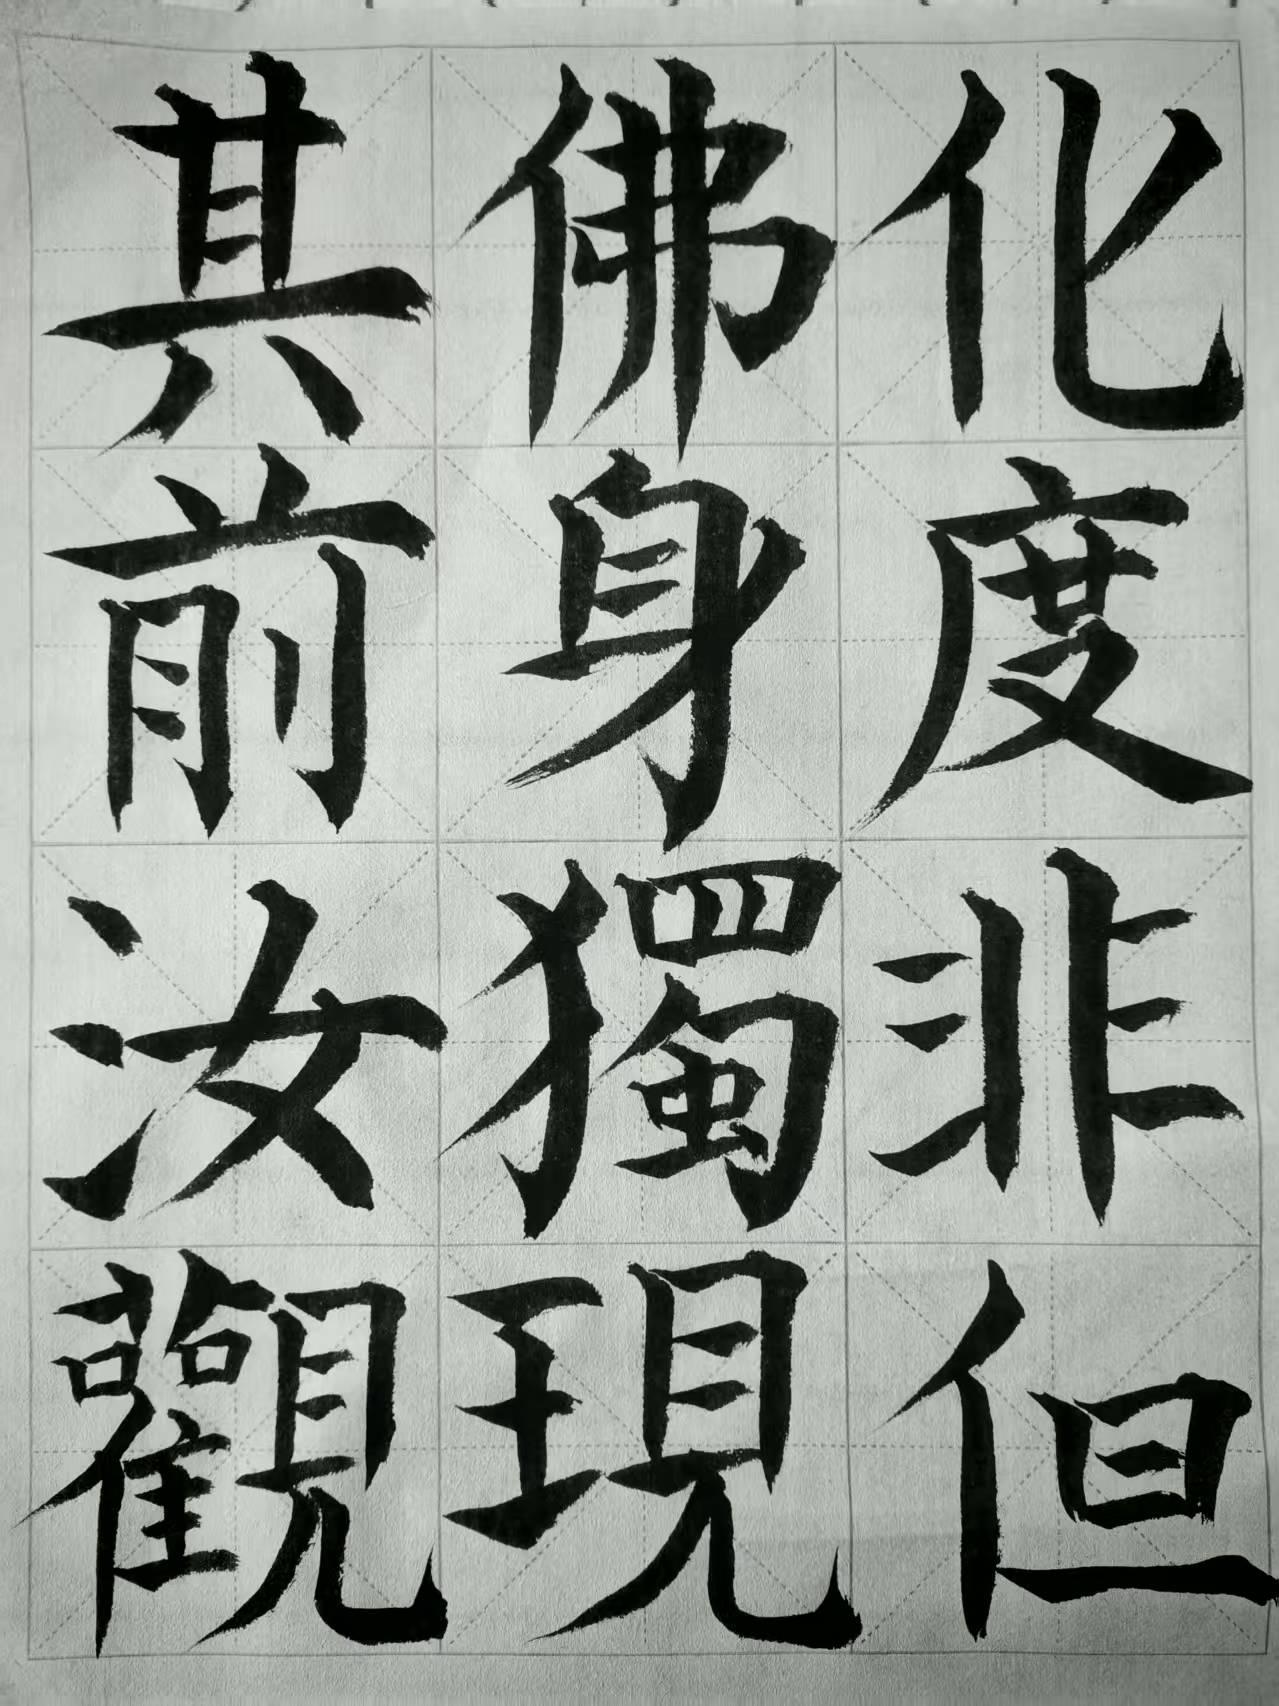 化度非但
佛身獨現
其前汝觀